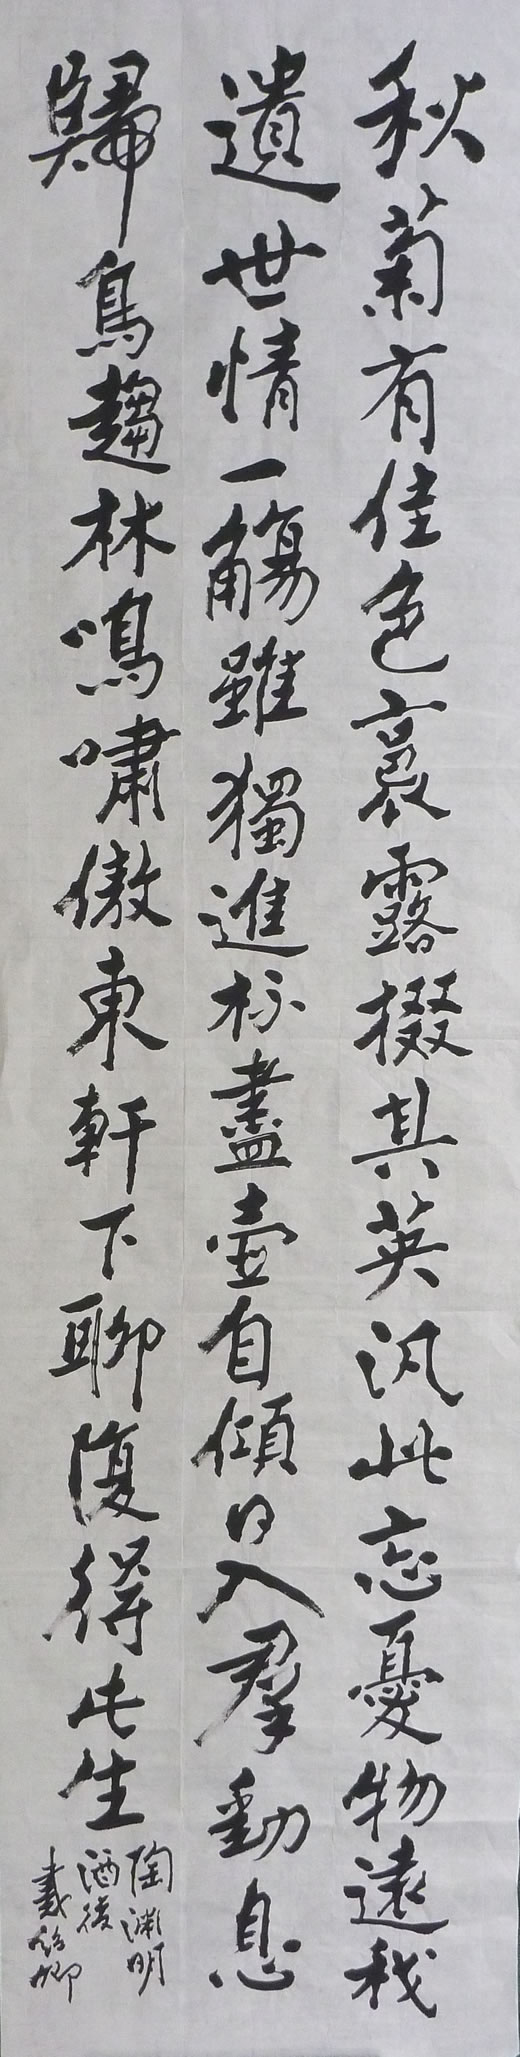 秋菊有佳色裛露掇其英汎此忘憂物遠我
遺世情一觴雖獨進杯盡壺自傾日入羣動息
歸鳥趨林鳴嘯傲東軒下聊復得此生
陶淵明
酒後